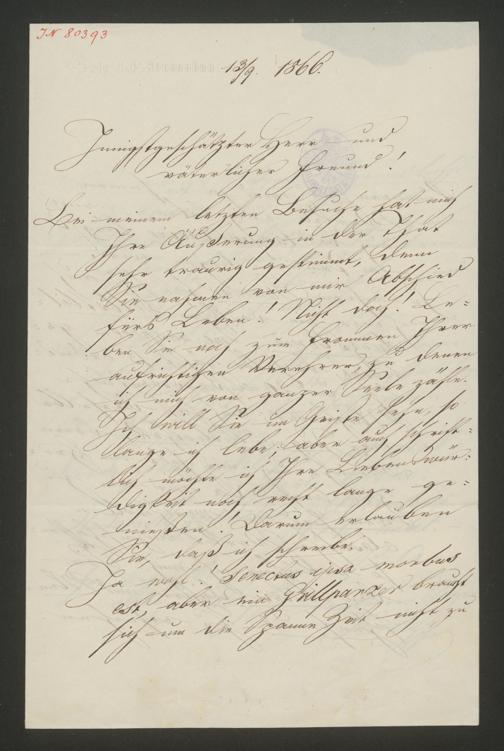 IN 80393
13/9. 1866.
Innigstgeschätzter Herr und
väterlicher Freund!
Bei meinem letzten Besuche hat mich
Ihre Äußerung in der That
sehr traurig gestimmt, denn
Sie nahmen von mir Abschied
fürs Leben! Nicht doch! Le=
ben Sie noch zum Frommen Ihrer
aufrichtigen Verehrer, zu denen
ich mich von ganzer Seele zähle.
Ich will Sie im Geiste sehn, so
lange ich lebe; aber auch schrift=
lich möchte ich Ihre Liebenswür=
digkeit noch recht lange ge=
nießen! Darum erlauben
Sie, daß ich schreibe.
Ja wohl! Senectus ipsa morbus
est, aber ein Grillparzer braucht
sich um die Spanne Zeit nicht zu